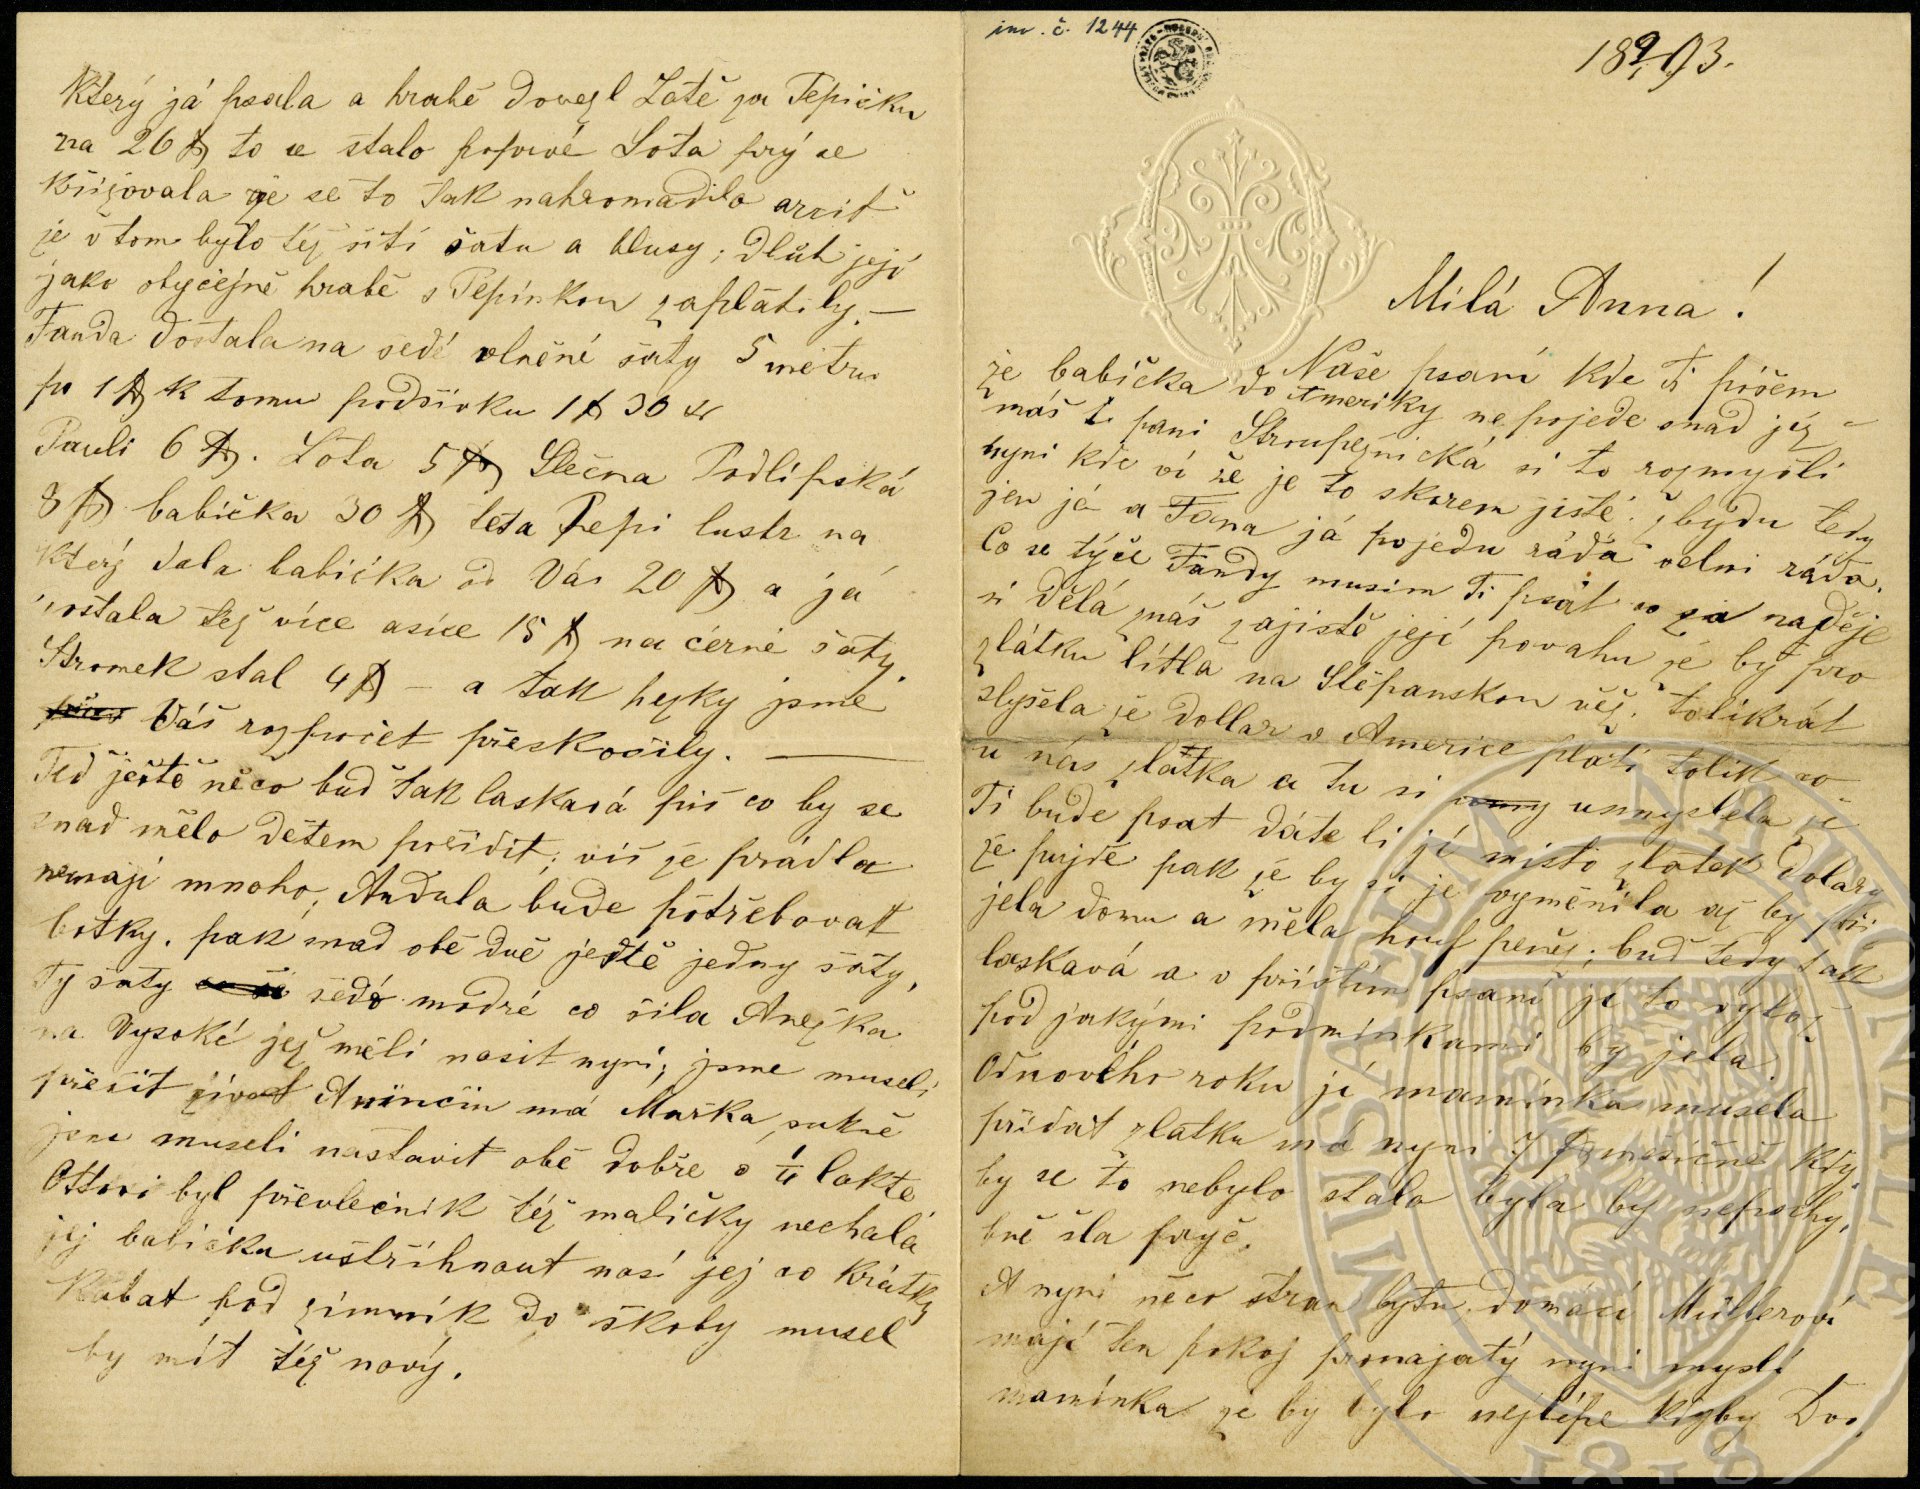 inv. č. 1244
18 9/1 93.
Milá Anna!
Naše psaní kde Ti píšem
že babička do Ameriky nepojede snad již
máš t. pani Stroupežnická si to rozmyšli
nyni kde ví že je to skorem jisté. zbydu tedy
jen já a Fana já pojedu ráda velmi ráda.
Co se týče Fandy musím Ti psát co za naděje
si dělá znáš zajisté její povahu že by pro
zlátku lítla na Štěpanskou věž. tolikrát
slyšela že dollar v Americe platí tolik co
u nás zlatka a tu si usmyslela že
Ti bude psat dáte li jí misto zlatek dolary
že pujde pak že by si je vyměnila až by při-
jela domu a měla houf peněz; buď tedy tak
laskavá a v příštím psaní jí to vylož
pod jakými podmínkami by jela.
Od nového roku jí maminka musela
přidat zlatku má nyni 7 f měsíčně kdy
by se to nebylo stalo byla by nepochy-
bně šla pryč.
A nyni něco stran bytu. domácí Müllerovi
mají ten pokoj pronajatý nyni myslí
maminka že by bylo nejlépe kdyby Dvo.
Který já psala a hrabě dovezl Lotě za Pepičku
na 26 f to se stalo poprvé Lota prý se
křižovala že se to tak nahromadilo arciť
je v tom bylo též šití šatu a blusy; dluh její
jako obyčejně hrabě s Pepínkou zaplatily. —
Fanda dostala na šedé vlněné šaty 5 metru
po 1 f k tomu podšivku 1 f 30 kr
Pauli 6 f. Lota 5 f Slečna Podlipská
8 f babička 30 f teta Pepi lustr na
který dala babička od Vás 20 f a já
dostala též více asice 15 f na černé šaty.
Stromek stal 4 f — a tak hezky jsme
Váš rozpočet přeskočily. —
Teď ještě něco buď tak laskavá piš co by se
snad mělo dětem pořídit; víš že prádla
nemají mnoho, Andula bude potřebovat
botky. pak snad obě dvě ještě jedny šaty,
Ty šaty šedo modré co šila Anežka
na Vysoké jež měli nosit nyni; jsme museli
přešit život Aninčin má Mařka, sukně
jsme museli nastavit obě dobře o 1/4 lokte
Ottovi byl převlečnik též maličky nechala
jej babička ustřihnout nosí jej co krátky
Kabat pod zimník do školy musel
by mít též nový.
MUSAEUM NATIONALE
1818